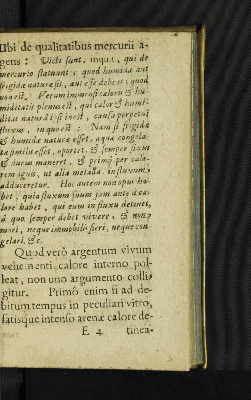 Ubi de qualitatibus mercurii a-
gens: Victi sunt, inquit, qui de
mercurio statuunt; quod humidæ aut
frigidæ naturæ sit, aut esse debeat; quod
non est. Verum immò est calore & hu-
miditate plenus est, qui calor & humi-
ditas naturâ ipsi inest, causa perpetui
fluxus, in quo est: Nam si frigidæ
& humidæ naturæ esset, aqua congela-
tæ similis esset, oportet, & semper fixus
& durus maneret, & primò per calo-
rem ignis, ut alia metalla, in fluxum
adduceretur. Hoc autem non opus ha-
bet, quia fluxum suum jam ante à ca-
lore habet, qui eum in fluxu detinet,
à quo semper debet vivere, & non
mori, neque immobilis fieri, neque con-
gelari, &c.
Quod verò argentum vivum
vehementi calore interno pol-
leat, non uno argumento colli-
gitur. Primò enim si ad de-
bitum tempus in peculiari vitro,
satisque intenso arenæ calore de-
E 4 tinea-